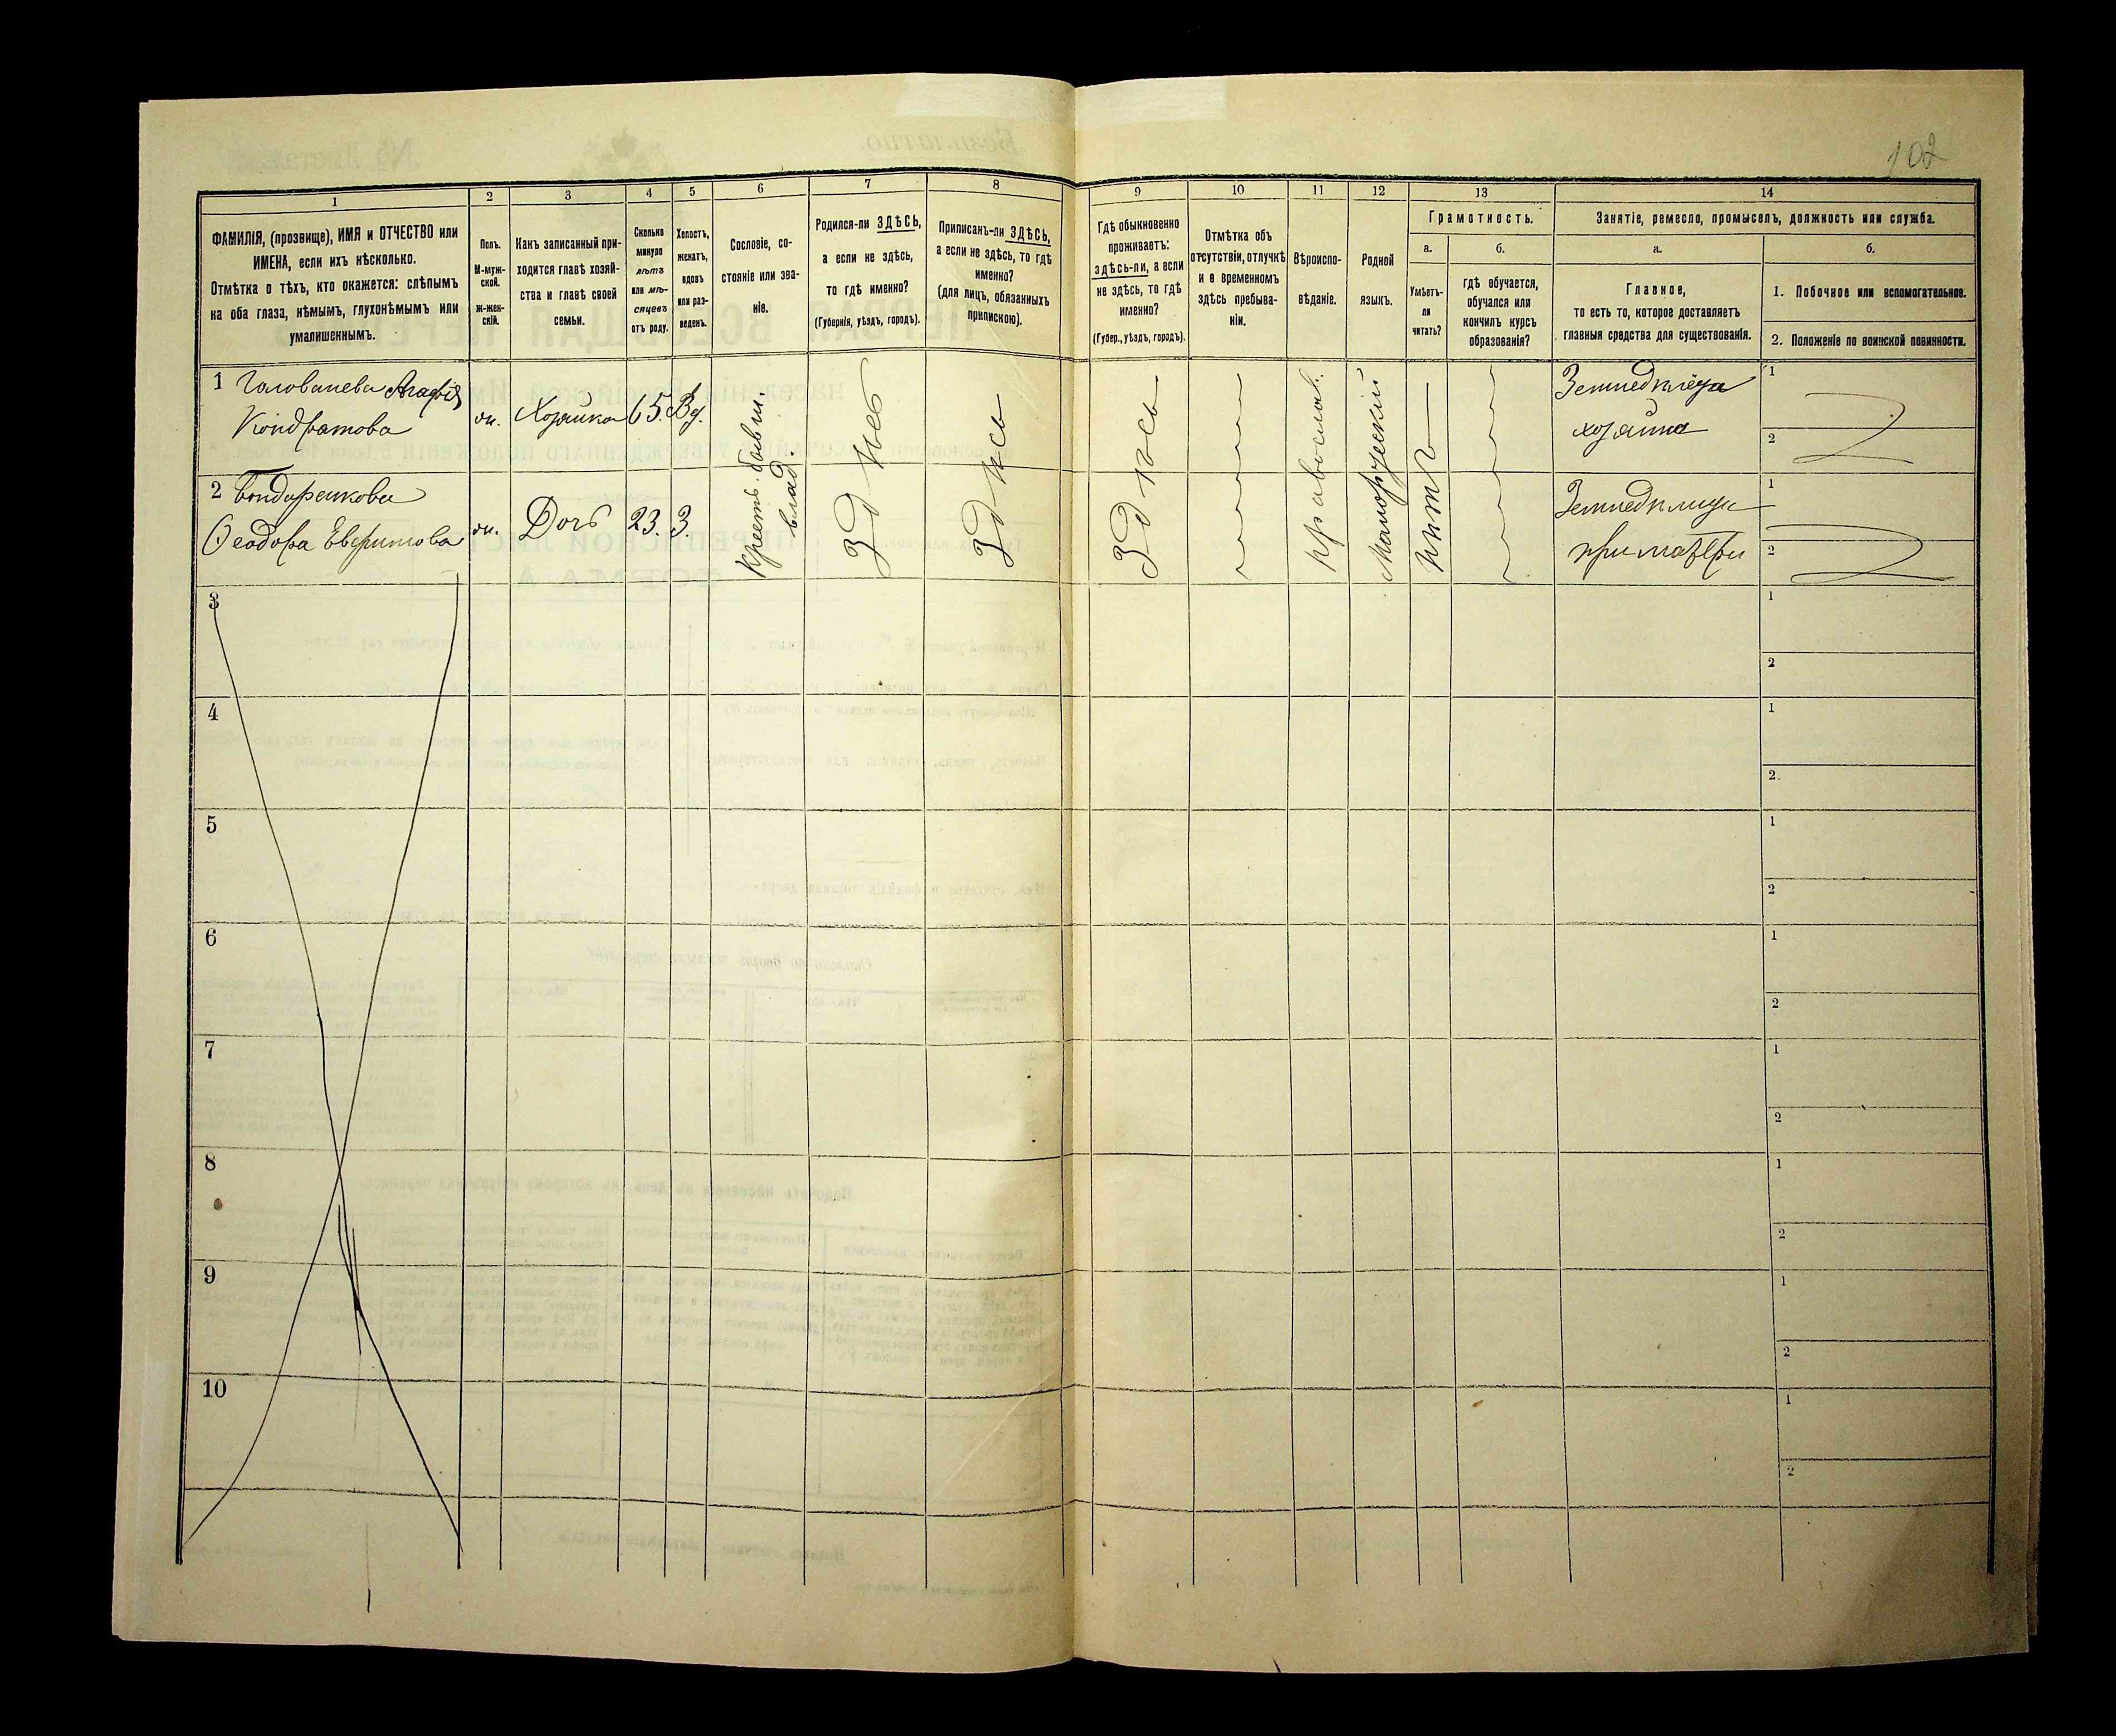 102
1
2
3
4
5
6
7
8
9
10
11
12
13
14
ФАМИЛІЯ, (прозвище), ИМЯ и ОТЧЕСТВО или
ИМЕНА, если ихъ нѣсколько.
Отмѣтка о тѣхъ, кто окажется: слѣпымъ
на оба глаза, нѣмымъ, глухонѣмымъ или
умалишеннымъ.
Полъ.
М-муж-
ской.
ж-жен-
скій.
Какъ записанный при-
ходится главѣ хозяй-
ства и главѣ своей
семьи.
Сколько
минуло
лѣтъ
или мѣ-
сяцевъ
отъ роду.
Холостъ,
женатъ,
вдовъ
или раз-
веденъ.
Сословіе, со-
стояніе или зва-
ніе.
Родился-ли ЗДѢСЬ,
а если не здѣсь,
то гдѣ именно?
(Губернія, уѣздъ, городъ).
Приписанъ-ли ЗДѢСЬ,
а если не здѣсь, то гдѣ
именно?
(для лицъ, обязанныхъ
припискою).
Гдѣ обыкновенно
проживаетъ:
здѣсь-ли, а если
не здѣсь, то гдѣ
именно?
(Губер., уѣздъ, городъ).
Отмѣтка объ
отсутствіи, отлучкѣ
и о временномъ
здѣсь пребыва-
ніи.
Вѣроиспо-
вѣданіе.
Родной
языкъ.
Грамотность.
а.
Умѣетъ-
ли
читать?
б.
гдѣ обучается,
обучался или
кончилъ курсъ
образованія?
Занятіе, ремесло, промыселъ, должность или служба.
а.
Главное,
то есть то, которое доставляетъ
главныя средства для существованія.
б.
1. Побочное или вспомогательное.
2. Положеніе по воинской повинности.
1 Голованева Агафія
Кондратова
ж. Хозяйка 65. Вд.
Крестъ. бывш.
влад.
Здѣсь
Здѣсь
Здѣсь
православ.
Малорусскій
нѣтъ
хозяйка
1
2
2 Бондаренкова
Ѳеодора Евфимова
ж. Дочь 23. З.
при матери
1
2
3
1
2
4
1
2.
5
1
2
6
1
2
7
1
2
8
1
2
9
1
2
10
1
2